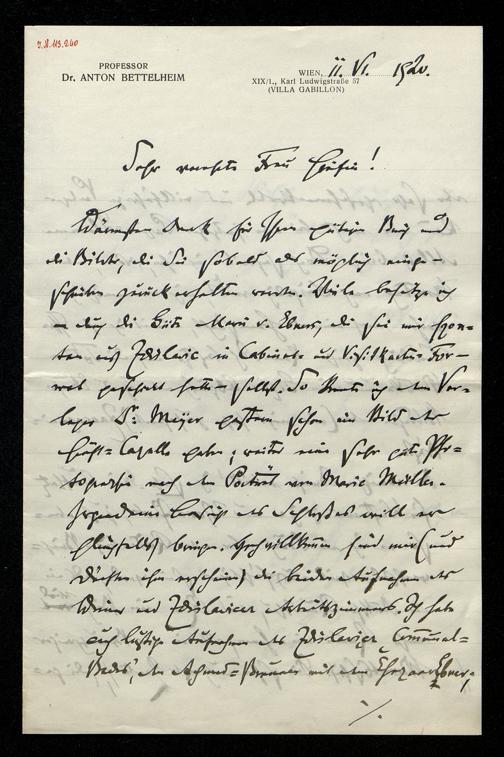 I.N. 113.260
PROFESSOR
Dr. ANTON BETTELHEIM
WIEN, 11. VI. 1920.
XIX/1., Karl Ludwigstraße 57
(VILLA GABILLON)
Sehr verehrte Frau Gräfin!
Wärmsten Dank für Ihren gütigen Brief und
die Bilder, die Sie sobald als möglich einge-
schrieben zurückerhalten werden. Viele besitze ich
durch die Güte Marie v. Ebners, die sie mir spon-
tan aus Zdislavic in Cabinet- und Visitkarten-For-
mat geschenkt hatte selbst. So konnte ich dem Ver-
leger Dr. Meyer gestern schon ein Bild der
Gruft-Capelle geben; weiter eine sehr gute Pho-
tographie nach dem Porträt von Marie Müller.
Irgendeine Ansicht des Schlosses will er
gleichfalls bringen. Hochwillkommen sind mir (und
dürften ihm erscheinen) die beiden Aufnahmen des
Wiener und Zdislavicer Arbeitszimmers. Ich habe
auch lustige Aufnahmen des Zdislavicer Communal-
Bades, des Brunnens mit dem Ehepaar Ebner,
./.